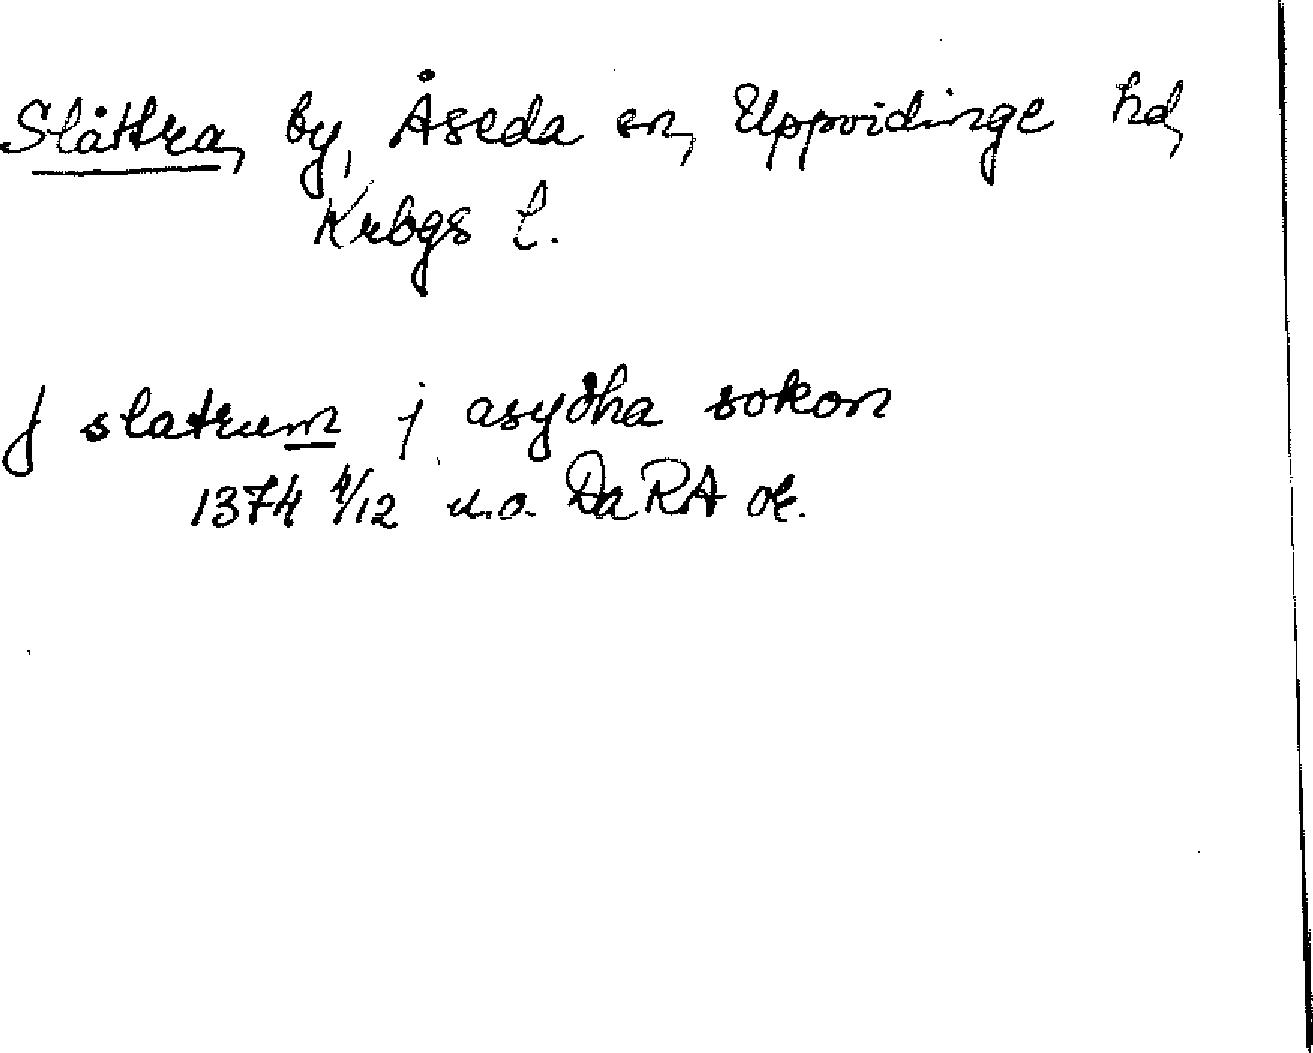 Slåttra, by, Åseda sn, Uppvidinge hd,
Krbgs l.
J slatrum j asydha sokon
1374 4/12 u.o. Da RA or.